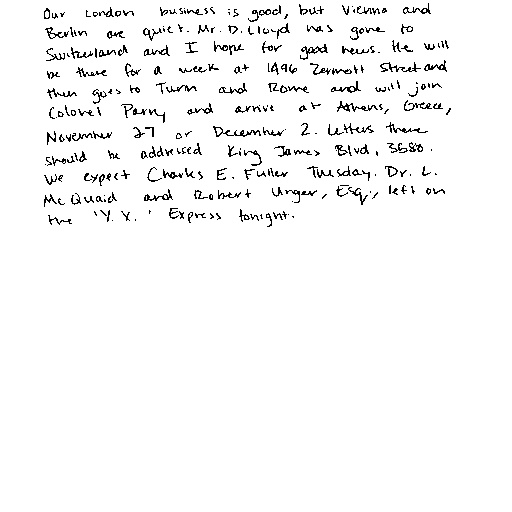 Our London business is good, but Vienna and
Berlin are quiet. Mr. D. Lloyd has gone to
Switzerland and I hope for good news. He will
be there for a week at 1496 Zermott Street and
then goes to Turin and Rome and will join
Colonel Parry and arrive at Athens, Greece,
November 27 or December 2. Letters there
should be addressed King James Blvd, 3580.
We expect Charles E. Fuller Tuesday. Dr. L.
McQuaid and Robert Unger, Esq., left on
the 'Y.X.' Express tonight.